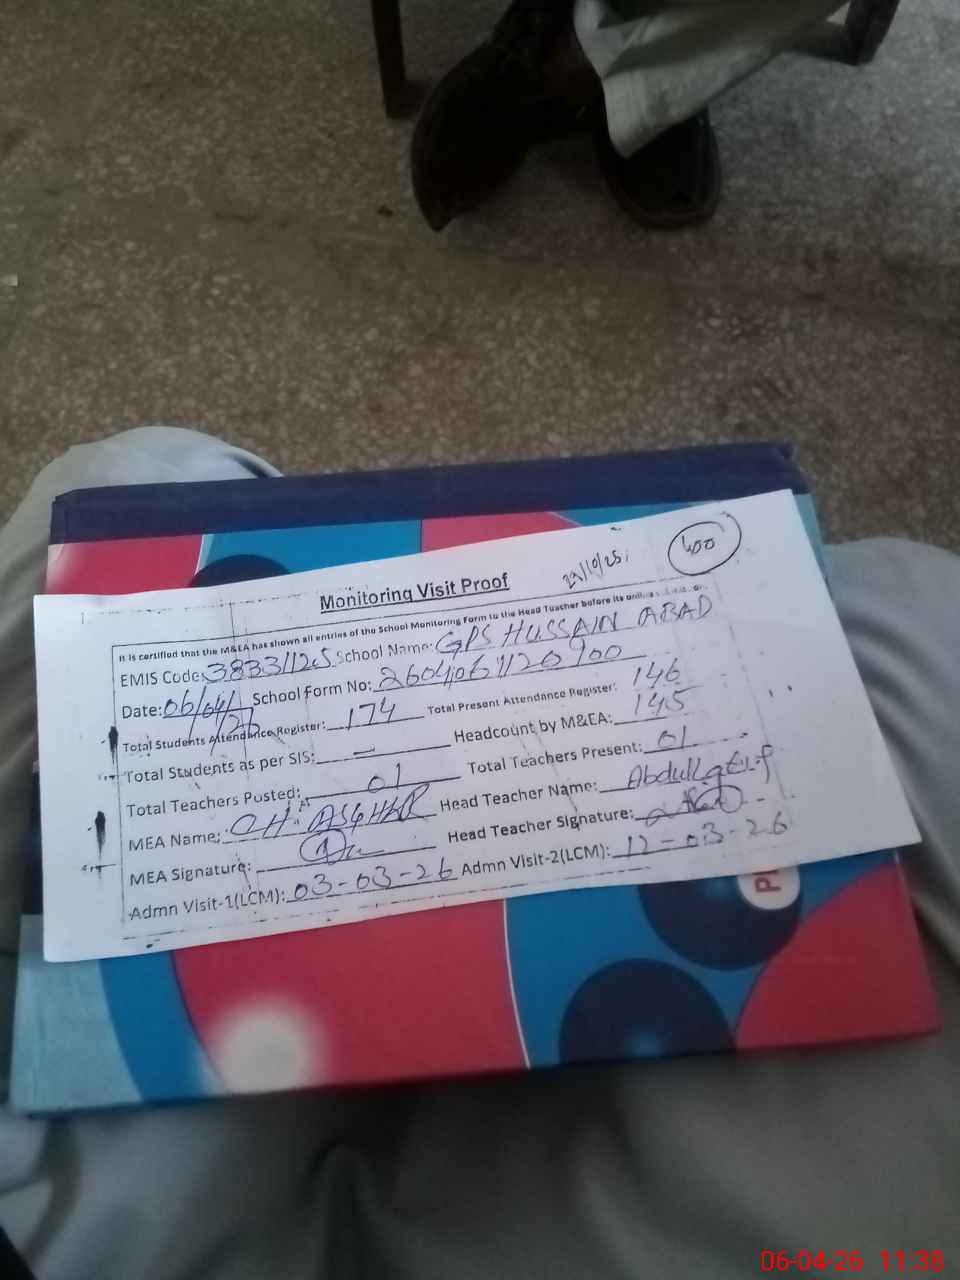 29/10/25
400
Monitoring Visit Proof
It is certified that the M&EA has shown all entries of the School Monitoring Form to the Head Teacher before its
EMIS Code: 38331125 School Name: GPS HUSSAIN ABAD
Date: 06/04/26 School Form No:
Total Students Attendance Register: 174 Total Present Attendance Register: 146
Total Students as per SIS: — Headcount by M&EA: 145
Total Teachers Posted: 01 Total Teachers Present: 01
MEA Name: CH. ASGHAR Head Teacher Name:
MEA Signature: Head Teacher Signature:
Admn Visit-1(LCM): 03-03-26 Admn Visit-2(LCM): 12-03-26
06-04-26 11:38